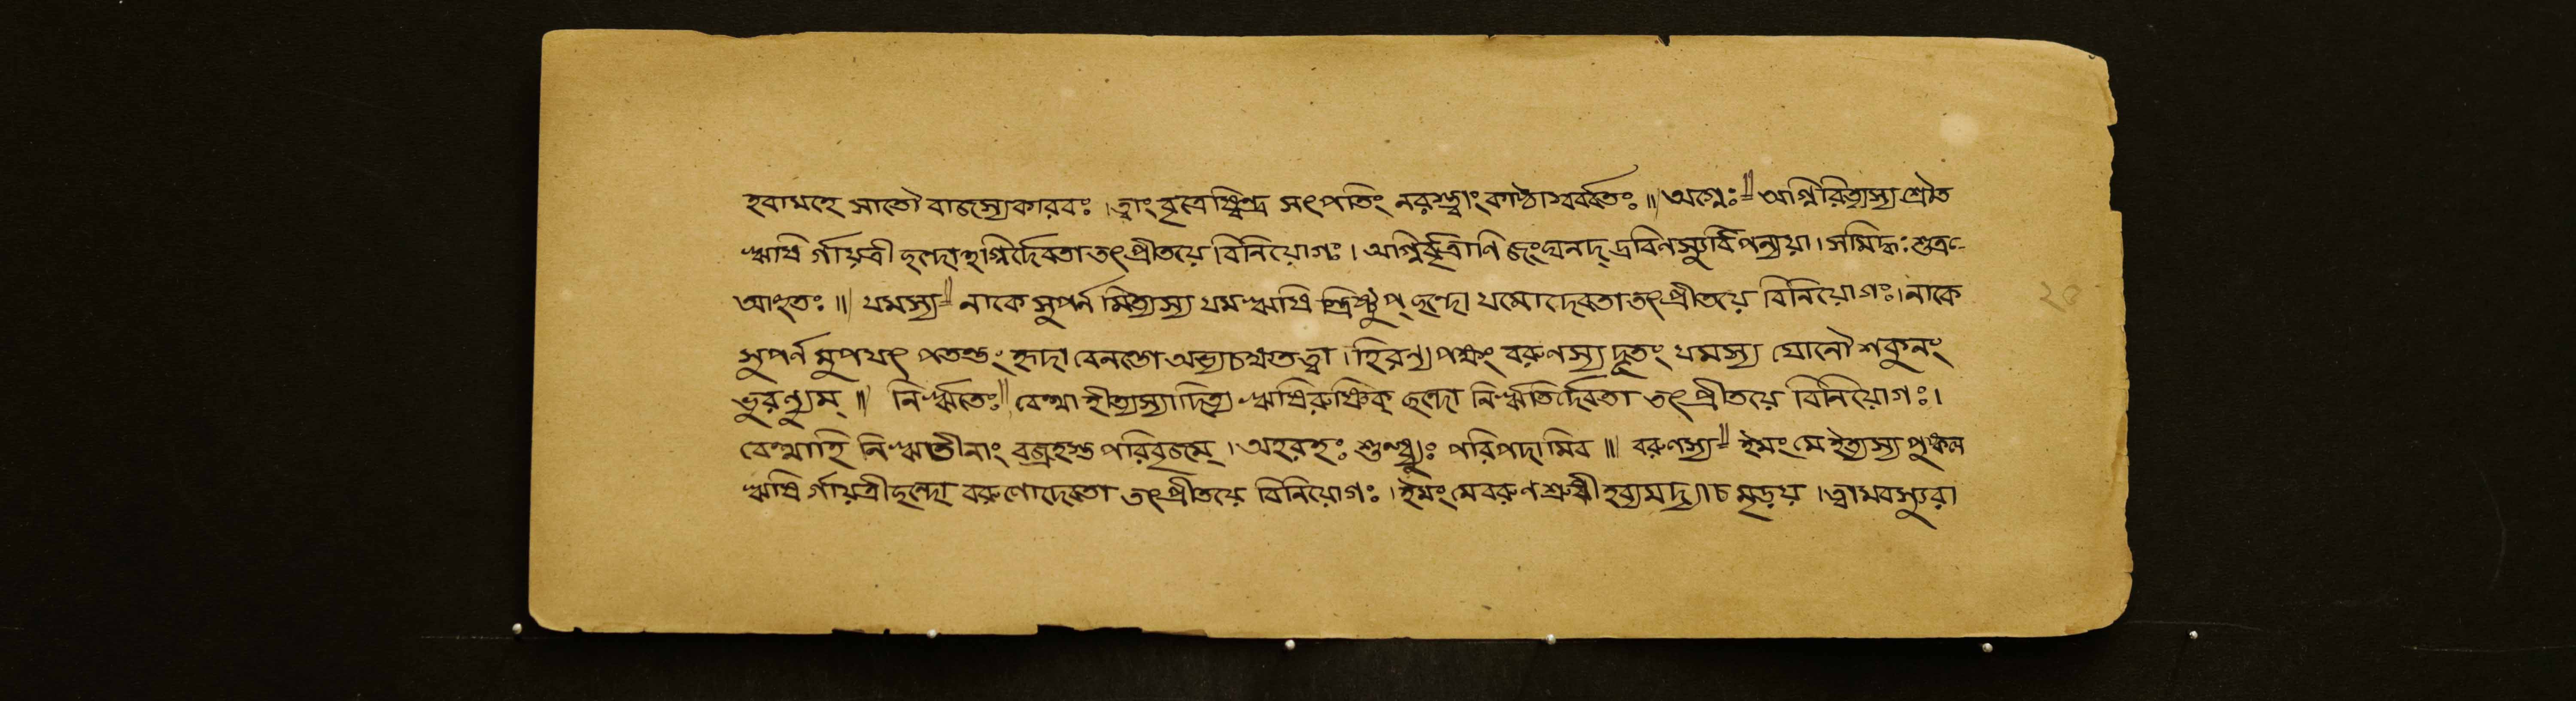 হবামহে সাতৌ বাজস্যকারবঃ ।ত্বাং বৃত্রেষ্বিন্দ্র সৎপতিং নরস্ত্বাং কাষ্ঠাস্বর্বতঃ ॥ অগ্নেঃ॥= অগ্নিরিত্যস্য শ্রৌত
ঋষি র্গায়ত্রী ছন্দোহগ্নির্দেবতা তৎপ্রীতয়ে বিনিয়োগঃ । অগ্নির্বৃত্রাণি জংঘনদ্ দ্রবিণস্যুর্বিপন্যয়া । সমিদ্ধঃ শুক্র-
আহুতঃ ॥ যমস্য॥= নাকে সুপর্ণ মিত্যস্য যম ঋষি স্ত্রিষ্টুপ্ ছন্দো যমোদেবতা তৎপ্রীতয়ে বিনিয়োগঃ । নাকে
সুপর্ণ মুপযৎ পতন্তং হৃদা বেনন্তো অভ্যচক্ষত ত্বা । হিরণ্য পক্ষং বরুণস্য দূতং যমস্য যোনৌ শকুনং
ভুরণ্যুম্ ॥ নির্ঋতেঃ॥= বেত্থা হীত্যস্যাদিত্য ঋষিরুষ্ণিক্ ছন্দো নির্ঋতির্দেবতা তৎপ্রীতয়ে বিনিয়োগঃ ।
বেত্থাহি নির্ঋতীনাং বজ্রহস্ত পরিবৃজম্ । অহরহঃ শুন্ধ্যুঃ পরিপদামিব ॥ বরুণস্য॥= ইমং মে ইত্যস্য পুষ্কল
ঋষি র্গায়ত্রীছন্দো বরুণোদেবতা তৎপ্রীতয়ে বিনিয়োগঃ । ইমং মেবরুণ শ্রুধী হব্যমদ্যা চ মৃড়য় । ত্বামবস্যুরা
২০